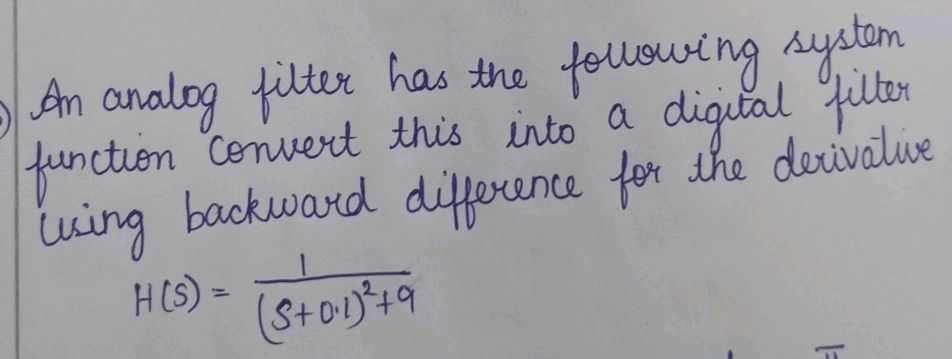 An analog filter has the following system
function Convert this into a digital filter
using backward difference for the derivative
H(S) = 1/((S+0.1)²+9)